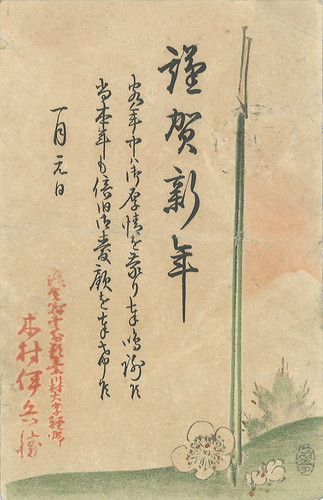 謹賀新年
客年中ハ御厚情を蒙り奉鳴謝候
当本年も倍旧御愛顧を奉希候
一月元日
木村伊兵衛